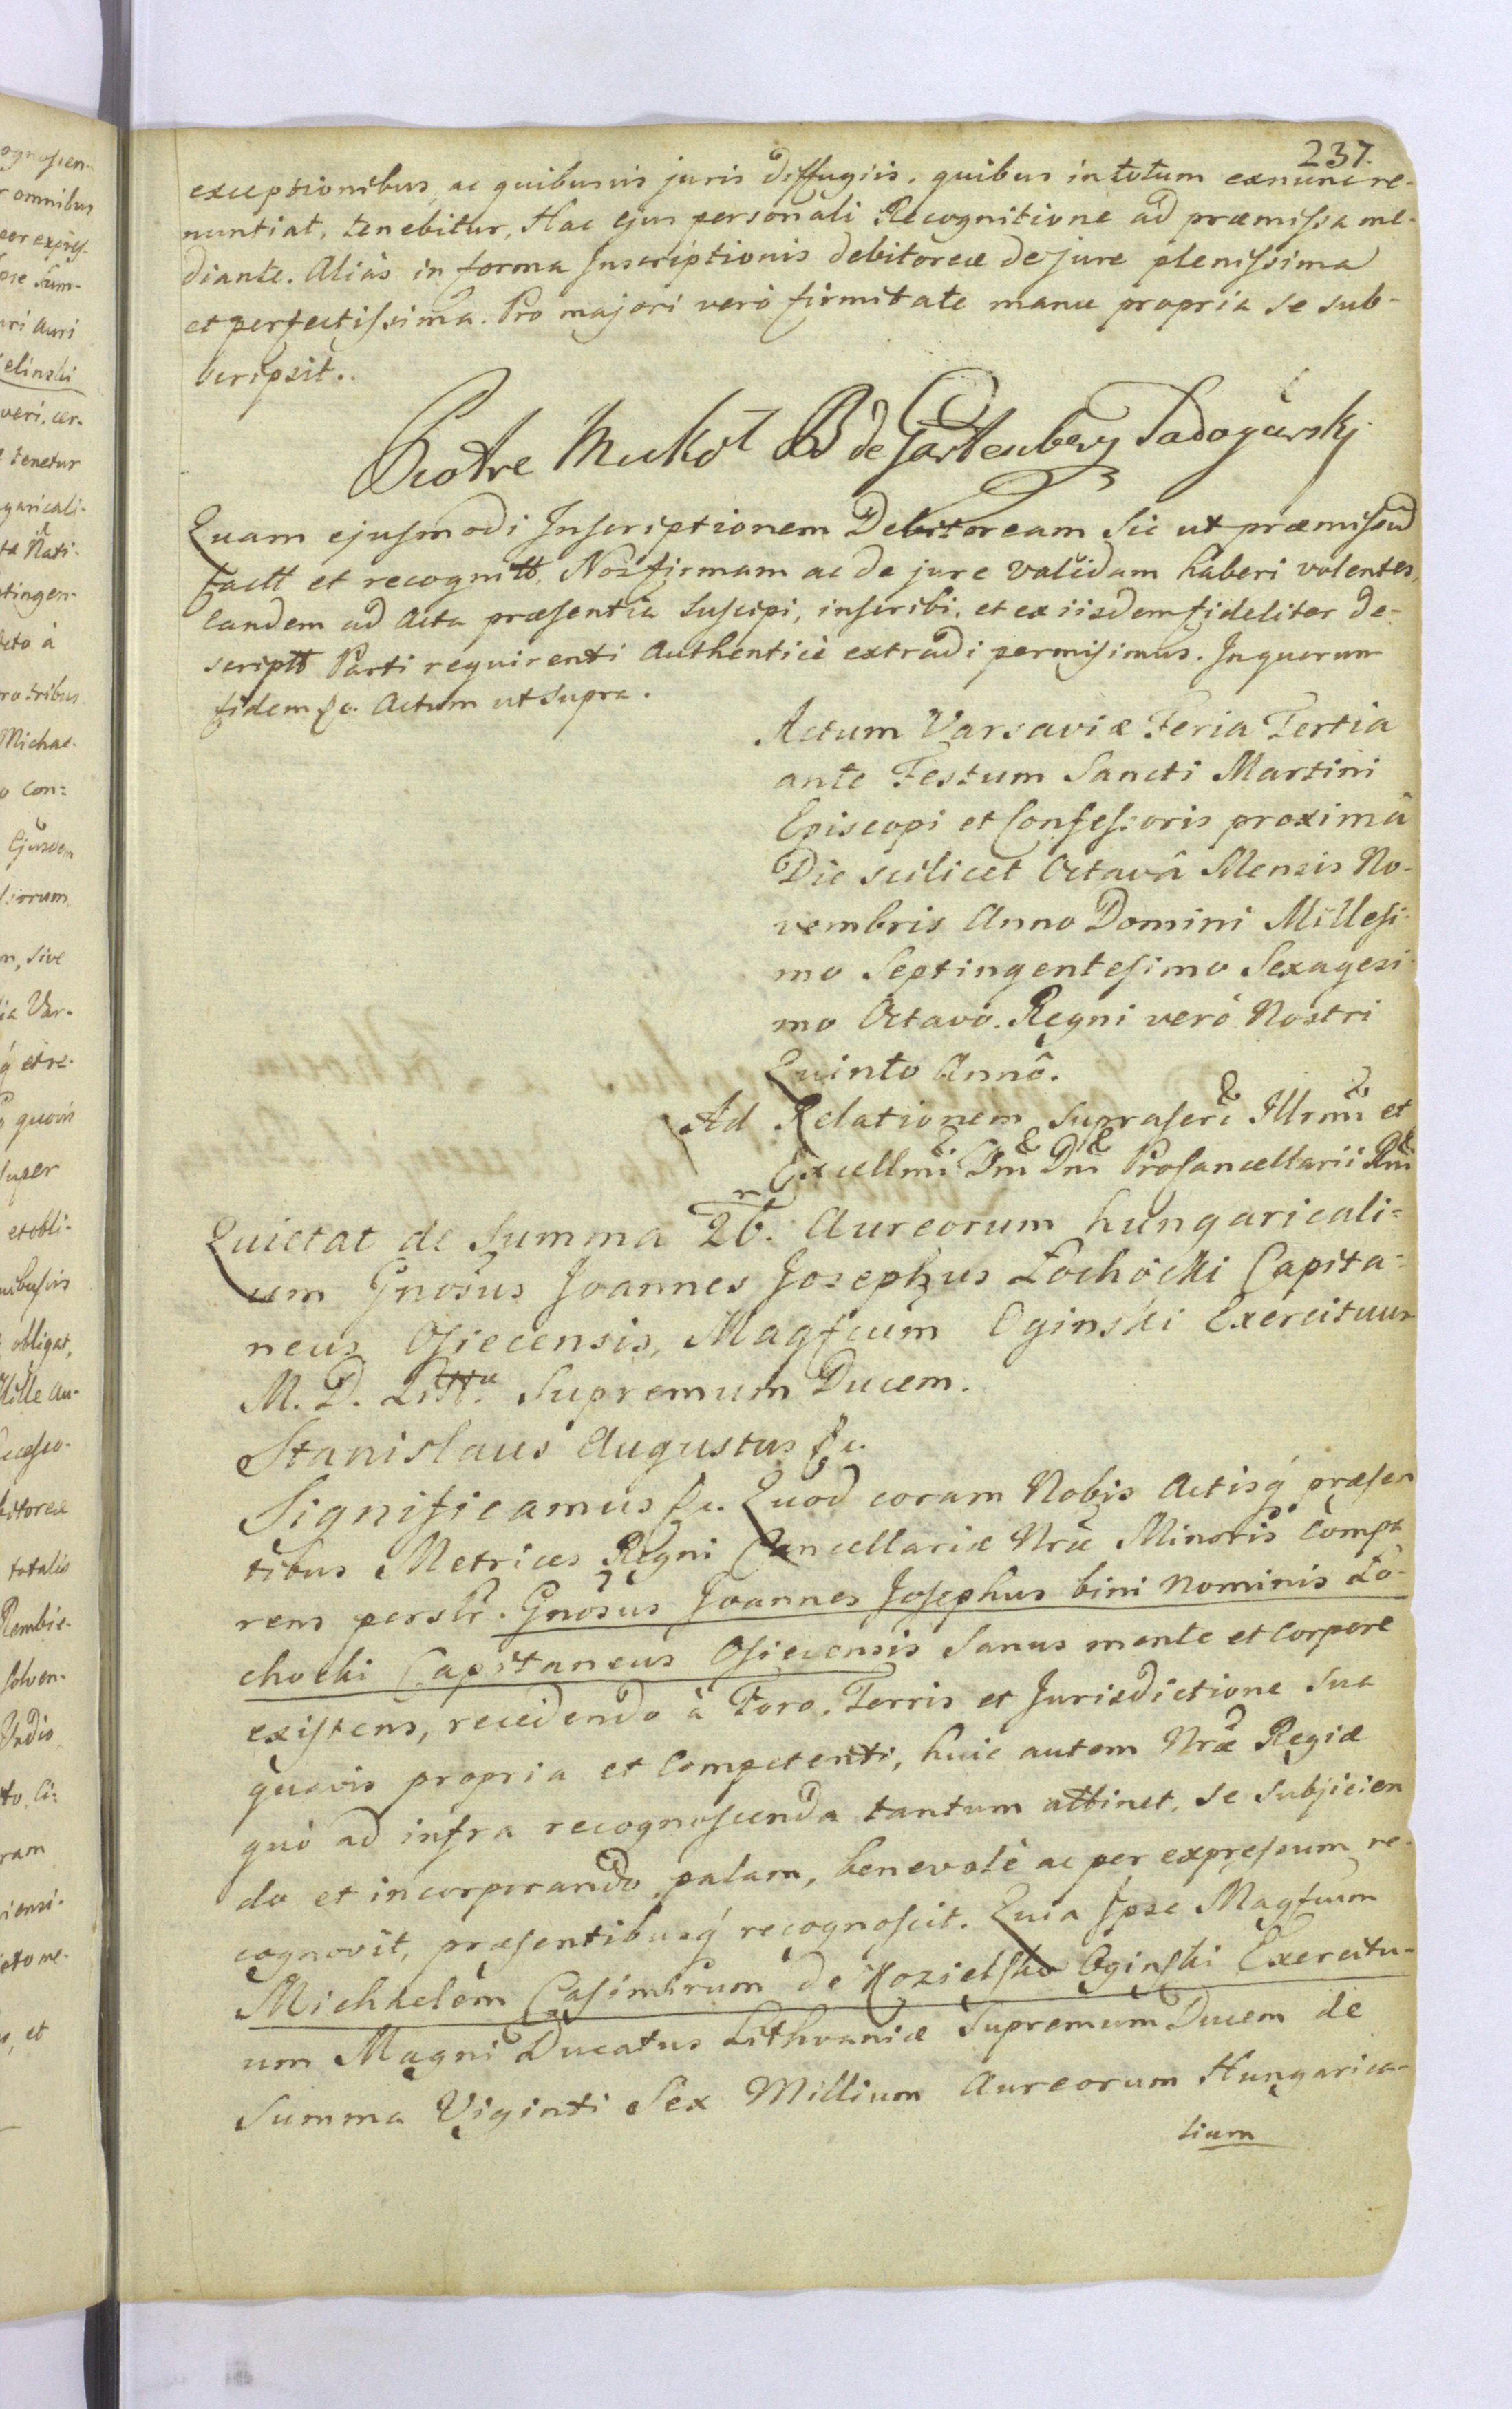 237.
exceptionibus, ac quibusvis juris diffugiis. quibus in totum exnunc re-
nuntiat, tenebitur, Hac ejus personali Recognitione ad præmissa me-
diante. Alias in forma Inscriptionis debitoreæ de jure plenissima
et perfectissima. Pro majori verò firmitate manu propria se sub-
scripsit..
Piotre Mikoł B de Gartenberg Sadogursky
Quam ejusmodi Inscriptionem Debitoream sic ut præmissũ
factt et recognitt, Nos firmam ac de jure validam haberi volentes,
eandem ad Acta præsentia suscipi, inscribi, et ex iisdem fideliter de-
scriptt Parti requirenti Authenticè extradi permisimus. In quorum
fidem &c. Actum ut supra.
Actum Varsaviæ Feria Tertia
ante Festum Sancti Martini
Episcopi et Confessoris proximâ
Die scilicet Octavâ Mensis No-
vembris Anno Domini Millesi-
mo Septingentesimo Sexagesi-
mo Octavo. Regni verò Nostri
Quinto Annô.
Ad Relationem suprascri Illrmi et
Excellmi Dni Dni Procancellarii Rni
Quietat de Summa 26.m Aureorum hungaricali=
um Gnosus Joannes Josephus Łochocki Capita=
neus Osiecensis, Magfcum Oginski Exercituum
M. D. Litt.æ Supremum Ducem.
Stanislaus Augustus &c.
Significamus &c. Quod coram Nobis Actisq́ præsen
tibus Metrices Regni Cancellariæ Nræ Minoris compa
rens perslr. Gnosus Joannes Josephus bini nominis Ło-
chocki Capitaneus Osiecensis sanus mente et corpore
existens, recedendo à Foro, Terris et Jurisdictione sua
quavis propria et competenti, huic autem Nræ Regiæ
quò ad infra recognoscenda tantum attinet, se subjicien
do et incorporando, palam, benevolè ac per expressum re-
cognovit, præsentibusq́ recognoscit. Quia Ipse Magfcum
Michaelem Casimirum de Kozielsko Oginski Exercitu-
um Magni Ducatus Lithvaniæ Supremum Ducem de
Summa Viginti Sex Millium Aureorum Hungarica-
lium